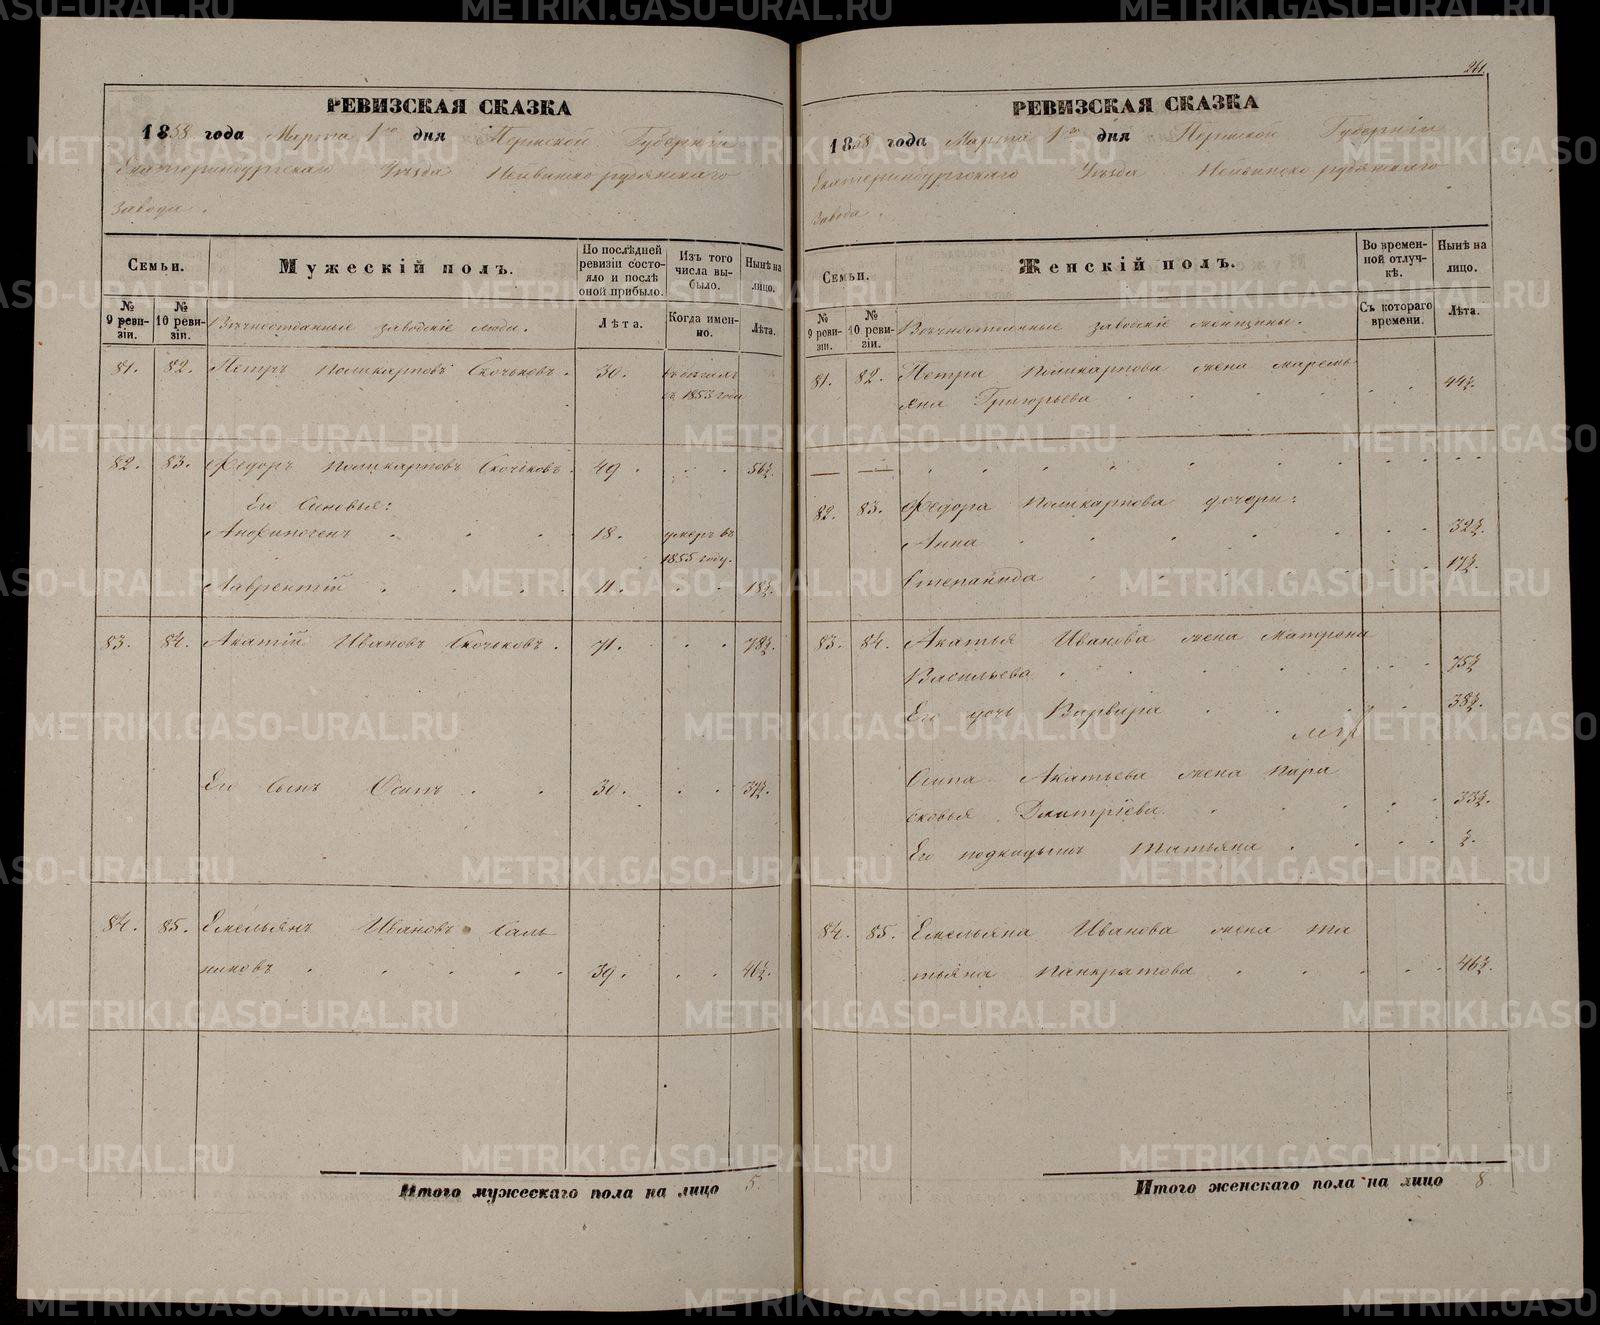 261.
РЕВИЗСКАЯ СКАЗКА
1858 года Марта 1го дня Пермской Губерніи
Екатеринбургскаго Уѣзда Нейвинско рудянскаго
Завода.
Семьи.
Мужескій полъ.
По послѣдней ревизіи состояло и послѣ оной прибыло.
Изъ того числа выбыло.
Нынѣ на лицо.
№ 9 ревизіи.
№ 10 ревизіи.
Вѣчноотданные заводскіе люди.
Лѣта.
Когда именно.
Лѣта.
81. 82. Петръ Поликарповъ Скочковъ. 30.
съ 1853 года
82. 83. Федоръ Поликарповъ Скочковъ. 49. 56½.
Его Сыновья:
Анфиногенъ 18. умеръ въ
1855 году.
Лаврентій 11. 18½.
83. 84. Акатій Ивановъ Скочковъ. 71. 78½.
Его сынъ Осипъ 30. 37½.
84. 85. Емельянъ Ивановъ Саль
никовъ 39. 46½.
Итого мужескаго пола на лицо 5.
РЕВИЗСКАЯ СКАЗКА
1858 года Марта 1го дня Пермской Губерніи
Екатеринбургскаго Уѣзда Нейвинско рудянскаго
Завода.
Семьи.
Женскій полъ.
Во временной отлучкѣ.
Нынѣ на лицо.
№ 9 ревизіи.
№ 10 ревизіи.
Вѣчноотданные заводскіе женщины.
Съ котораго времени.
Лѣта.
81. 82. Петра Поликарпова жена Маремь
яна Григорьева 44½.
82. 83. Федора Поликарпова дочери:
Анна 32½.
Степанида 17½.
83. 84. Акатья Иванова жена Матрона
Васильева 75½
Его дочь Варвара 38½.
Осипа Акатьева жена Пара
сковья Дмитріева. 33½.
Его подкидышъ Татьяна ½.
84. 85. Емельяна Иванова жена Та
тьяна Панкратова 46½.
Итого женскаго пола на лицо 8.
METRIKI.GASO-URAL.RU